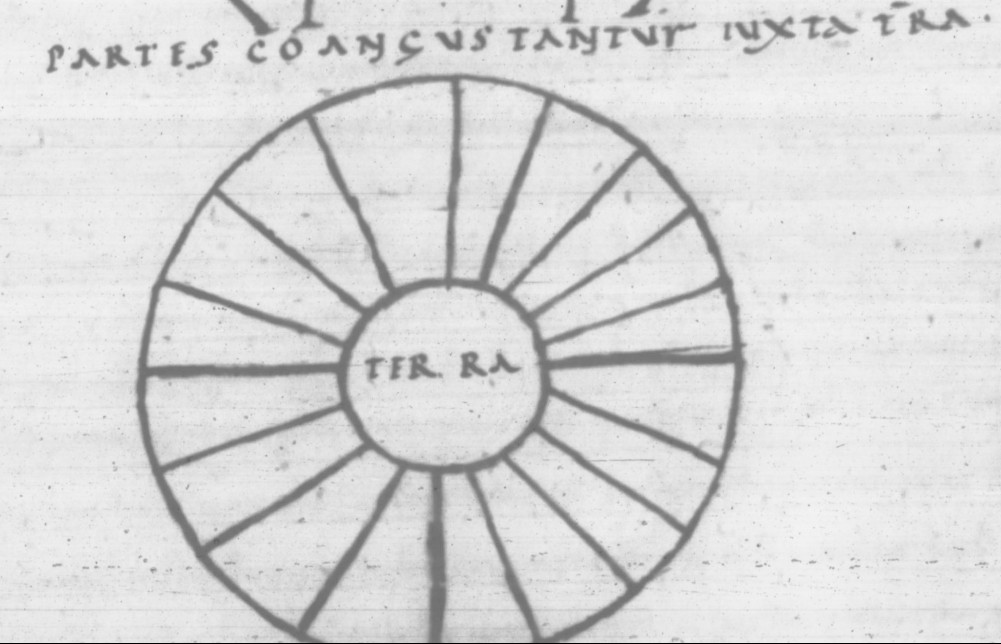 PARTES COANGUSTANTUR IUXTA TRA.
TER RA